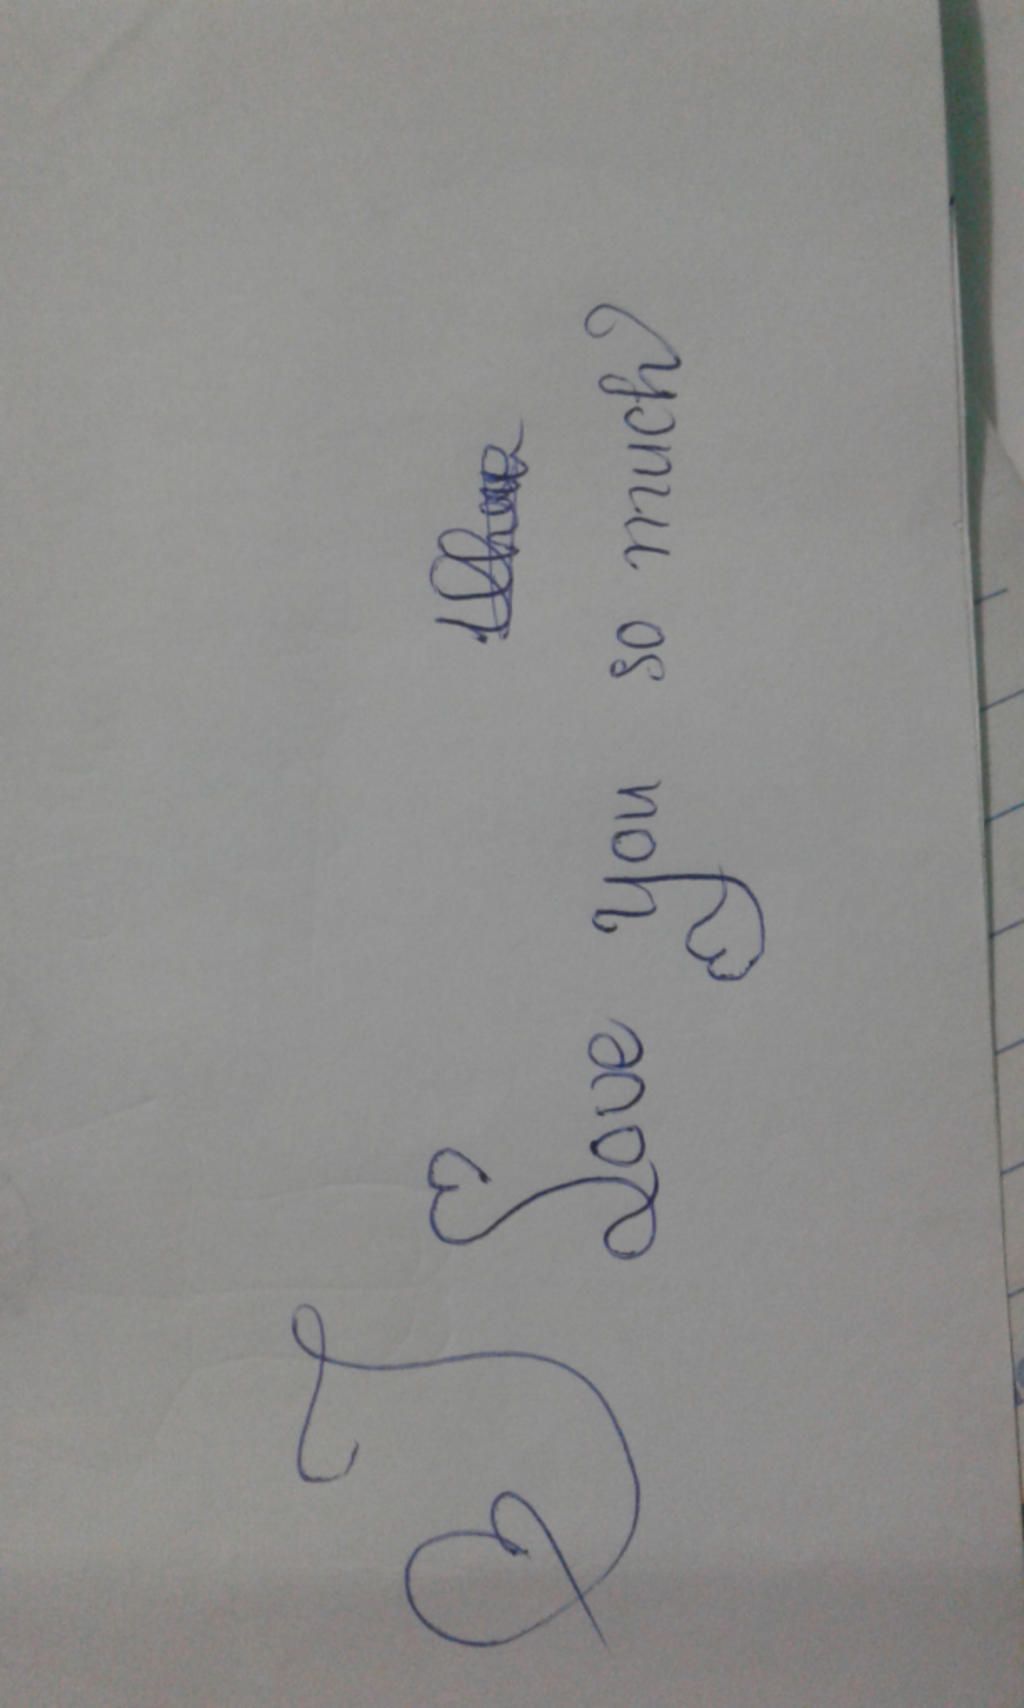 I Love you so much